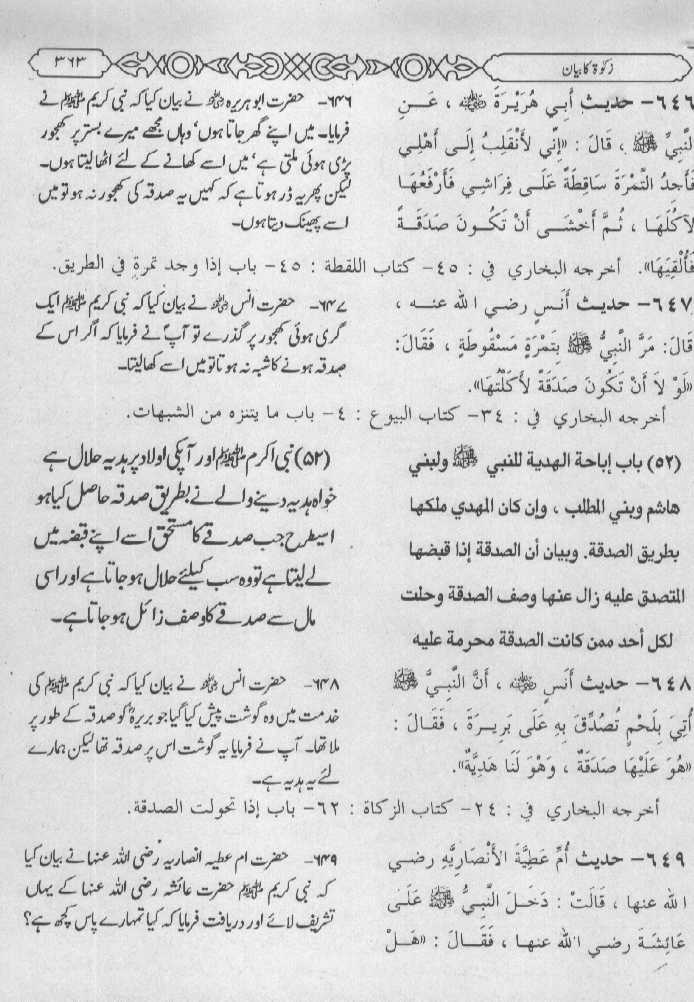 زکوٰۃ کا بیان
۳۶۳
٦٤٦- حديث أَبِي هُرَيْرَةَ ﷺ ، عَـنِ
النَّبِيِّ ﷺ ، قَالَ : «إِنِّي لأَنْقَلِبُ إِلَـى أَهْلِـي
فَأَجِدُ التَّمْرَةَ سَاقِطَةً عَلَـى فِرَاشِي فَأَرْفَعُهَـا
لآكُلَهَـا ، ثُـمَّ أَخْشَـى أَنْ تَكُـونَ صَدَقَـةً
فَأُلْقِيَهَا».
۶۴۶- حضرت ابو ہریرہ نے بیان کیا کہ نبی کریم ﷺ نے
فرمایا۔ میں اپنے گھر جاتا ہوں‘ وہاں مجھے میرے بستر پر کھجور
پڑی ہوئی ملتی ہے‘ میں اسے کھانے کے لئے اٹھا لیتا ہوں۔
لیکن پھر یہ ڈر ہوتا ہے کہ کہیں یہ صدقہ کی کھجور نہ ہو تو میں
اسے پھینک دیتا ہوں۔
أخرجه البخاري في : ٤٥- كتاب اللقطة : ٤٥- باب إذا وجد تمرةً في الطريق.
٦٤٧- حديث أَنَـسٍ رضـي ا لله عنـه ،
قَالَ: مَرَّ النَّبِيُّ ﷺ بِتَمْرَةٍ مَسْقُوطَةٍ ، فَقَالَ:
«لَوْ لاَ أَنْ تَكُونَ صَدَقَةً لأَكَلْتُهَا».
۶۴۷- حضرت انس نے بیان کیا کہ نبی کریم ﷺ ایک
گری ہوئی کھجور پر گذرے تو آپؐ نے فرمایا کہ اگر اس کے
صدقہ ہونے کا شبہ نہ ہوتا تو میں اسے کھا لیتا۔
أخرجه البخاري في : ٣٤- كتاب البيوع : ٤- باب ما يتنزه من الشبهات.
(٥٢) باب إباحة الهدية للنبي ﷺ ولبني
هاشم وبني المطلب ، وإن كان المهدي ملكها
بطريق الصدقة. وبيان أن الصدقة إذا قبضها
المتصدق عليه زال عنها وصف الصدقة وحلت
لكل أحد ممن كانت الصدقة محرمة عليه
(۵۲) نبی اکرم ﷺ اور آپکی اولاد پر ہدیہ حلال ہے
خواہ ہدیہ دینے والے نے بطریق صدقہ حاصل کیا ہو
اسیطرح جب صدقے کا مستحق اسے اپنے قبضہ میں
لے لیتا ہے تو وہ سب کیلئے حلال ہو جاتا ہے اور اسی
مال سے صدقے کا وصف زائل ہو جاتا ہے۔
٦٤٨- حديث أَنَسٍ ، أَنَّ النَّبِيَّ ﷺ
أُتِيَ بِلَحْمٍ تُصُدِّقَ بِهِ عَلَى بَرِيـرَةَ ، فَقَـالَ :
«هُوَ عَلَيْهَا صَدَقَةٌ ، وَهْوَ لَنَا هَدِيَّةٌ».
۶۴۸- حضرت انس نے بیان کیا کہ نبی کریم ﷺ کی
خدمت میں وہ گوشت پیش کیا گیا جو بریرہؓ کو صدقہ کے طور پر
ملا تھا۔ آپ نے فرمایا یہ گوشت اس پر صدقہ تھا لیکن ہمارے
لئے یہ ہدیہ ہے۔
أخرجه البخاري في : ٢٤- كتاب الزكاة : ٦٢- باب إذا تحولت الصدقة.
٦٤٩- حديث أُمِّ عَطِيَّةَ الأَنْصَارِيَّةِ رضـي
الله عنها ، قَالَتْ : دَخَلَ النَّبِيُّ ﷺ عَلَـى
عَائِشَةَ رضي الله عنهـا ، فَقَـالَ : «هَـلْ
۶۴۹- حضرت ام عطیہ انصاریہ رضی اللہ عنہا نے بیان کیا
کہ نبی کریم ﷺ حضرت عائشہ رضی اللہ عنہا کے یہاں
تشریف لائے اور دریافت فرمایا کہ کیا تمہارے پاس کچھ ہے؟